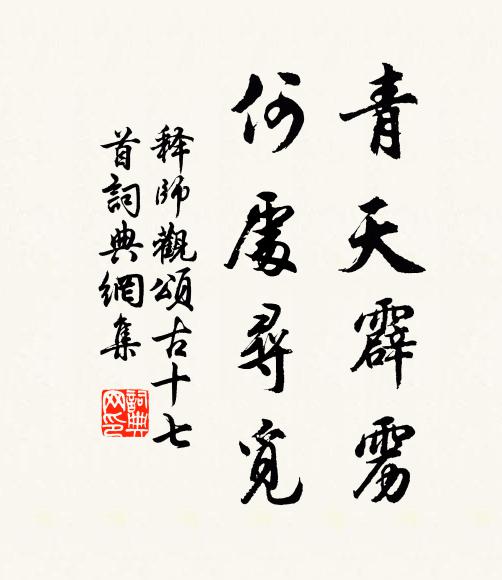 青天霹雳
何處尋覓
释師觀頌古十七
首詞典網集
詞典
网印